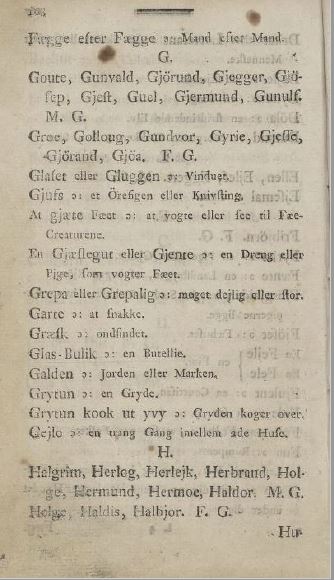 Fægge efter Fægge ɔ: Mand efter Mand.
G.
Goute, Gunvald, Gjörund, Gjegger, Gjö-
sep, Gjest, Guel, Gjermund, Gunulf.
M. G.
Groe, Golloug, Gundvor, Gyrie, Gjesse,
Gjörand, Gjöa. F. G.
Glaset eller Gluggen ɔ: Vinduet.
Gjufs ɔ: et Örefigen eller Knivsting.
At gjæte Fæet ɔ: at vogte eller see til Fæe-
Creaturene.
En Gjæslegut eller Gjente ɔ: en Dreng eller
Pige, som vogter Fæet.
Grepa eller Grepalig ɔ: meget dejlig eller stor.
Garte ɔ: at snakke.
Græsk ɔ: ondsindet.
Glas-Bulik ɔ: en Butellie.
Galden ɔ: Jorden eller Marken.
Grytun ɔ: en Gryde.
Grytun kook ut yvy ɔ: Gryden koger over.
Gejlo ɔ: en trang Gang imellem 2de Huse.
H.
Halgrim, Herlog, Herlejk, Herbrand, Hol-
ge, Hermund, Hermoe, Haldor. M. G.
Holge, Haldis, Halbjor. F. G.
Hu-